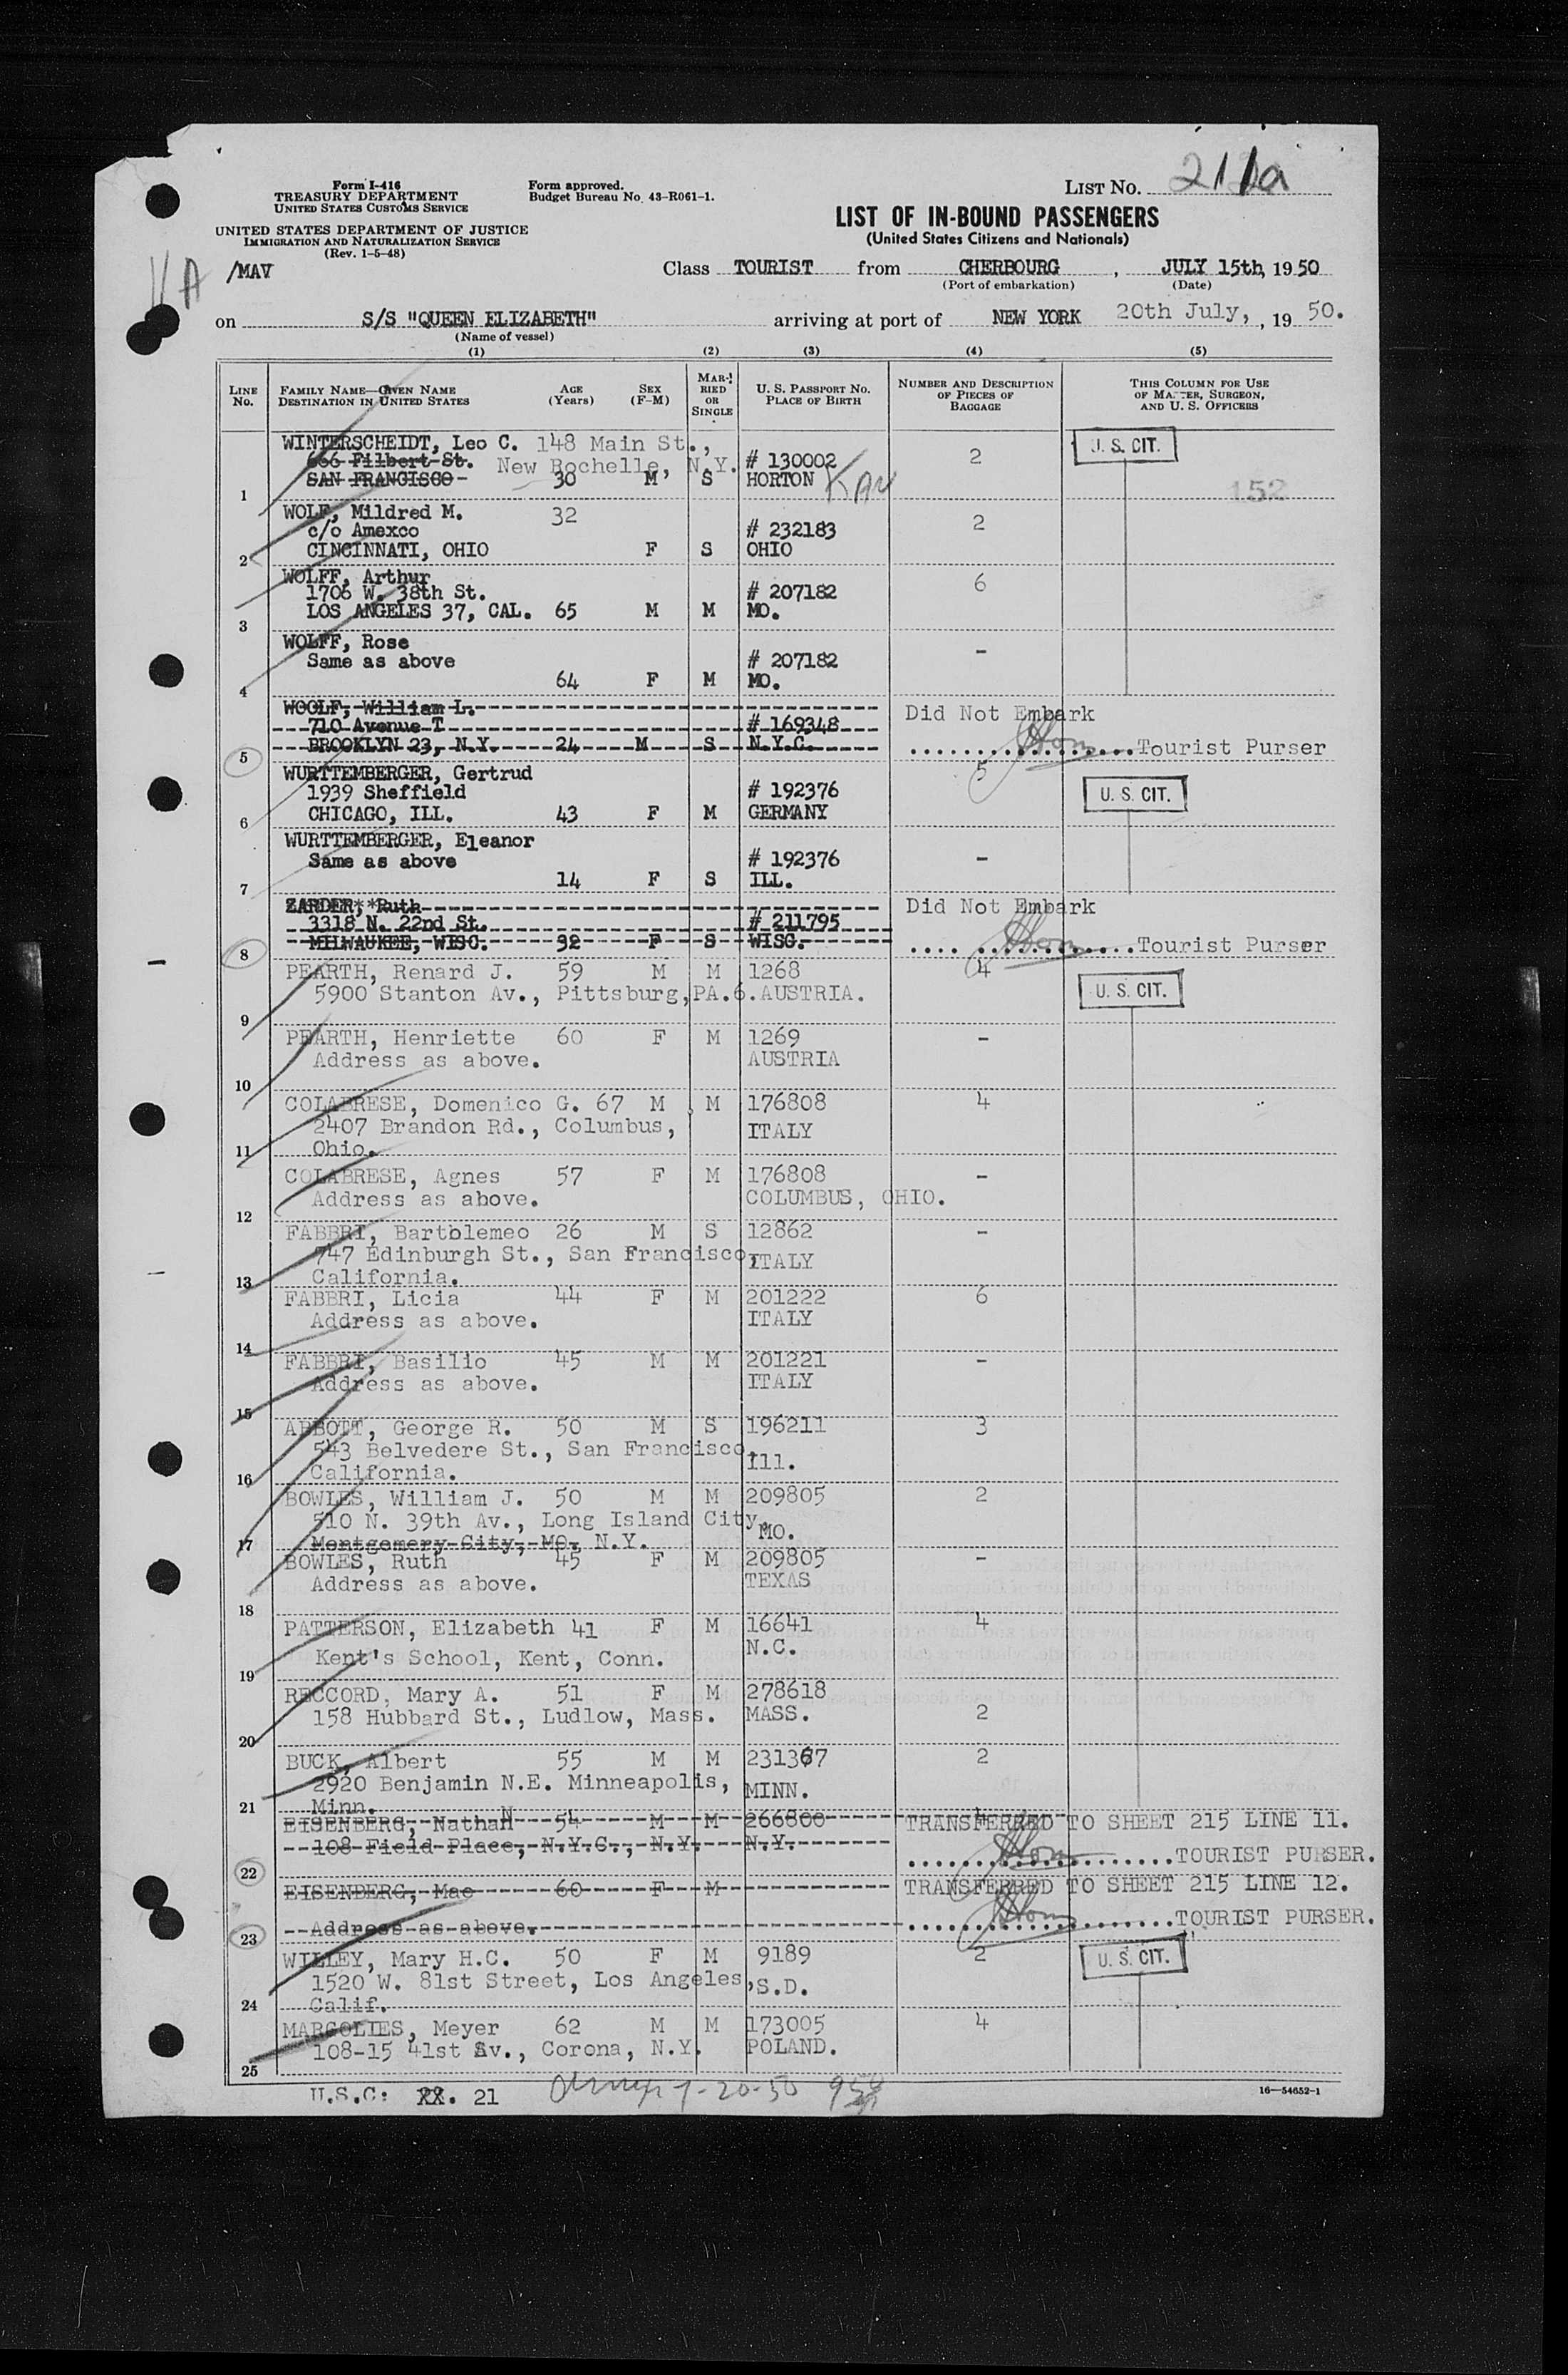 Form I-416
TREASURY DEPARTMENT
UNITED STATES CUSTOMS SERVICE
UNITED STATES DEPARTMENT OF JUSTICE
IMMIGRATION AND NATURALIZATION SERVICE
(Rev. 1-5-48)
Form approved.
Budget Bureau No. 43-R061-1.
LIST NO.
LIST OF IN-BOUND PASSENGERS
(United States Citizens and Nationals)
/MAV
Class TOURIST from CHERBOURG, JULY 15th, 1950
(Port of embarkation) (Date)
on S/S "QUEEN ELIZABETH" arriving at port of NEW YORK 20th July, , 19 50.
(Name of vessel)
(1) (2) (3) (4) (5)
LINE No. FAMILY NAME—GIVEN NAME DESTINATION IN UNITED STATES AGE (Years) SEX (F-M) MARRIED OR SINGLE U. S. PASSPORT NO. PLACE OF BIRTH NUMBER AND DESCRIPTION OF PIECES OF BAGGAGE THIS COLUMN FOR USE OF MASTER, SURGEON, AND U. S. OFFICERS
WINTERSCHEIDT, Leo C. 148 Main St., 2 U. S. CIT.
666 Filbert St. New Rochelle, N.Y. # 130002
1 SAN FRANCISCO 30 M S HORTON 152
WOLF, Mildred M. 32 2
c/o Amexco # 232183
2 CINCINNATI, OHIO F S OHIO
WOLFF, Arthur 6
1706 W. 38th St. # 207182
3 LOS ANGELES 37, CAL. 65 M M MO.
WOLFF, Rose
Same as above # 207182 -
4 64 F M MO.
WOOLF, William L. Did Not Embark
710 Avenue T # 169348
5 BROOKLYN 23, N.Y. 24 M S N.Y.C. Tourist Purser
WURTTEMBERGER, Gertrud 5
1939 Sheffield # 192376 U. S. CIT.
6 CHICAGO, ILL. 43 F M GERMANY
WURTTEMBERGER, Eleanor
Same as above # 192376 -
7 14 F S ILL.
ZARDER,**Ruth Did Not Embark
3318 N. 22nd St. # 211795
8 MILWAUKEE, WISC. 32 F S WISC. Tourist Purser
PEARTH, Renard J. 59 M M 1268 4
5900 Stanton Av., Pittsburg, PA.6. AUSTRIA. U. S. CIT.
9
PEARTH, Henriette 60 F M 1269 -
Address as above. AUSTRIA
10
COLABRESE, Domenico G. 67 M M 176808 4
2407 Brandon Rd., Columbus, ITALY
11 Ohio.
COLABRESE, Agnes 57 F M 176808 -
Address as above. COLUMBUS, OHIO.
12
FABBRI, Bartblemeo 26 M S 12862 -
747 Edinburgh St., San Francisco, ITALY
13 California.
FABBRI, Licia 44 F M 201222 6
Address as above. ITALY
14
FABBRI, Basilio 45 M M 201221 -
Address as above. ITALY
15
ABBOTT, George R. 50 M S 196211 3
543 Belvedere St., San Francisco, Ill.
16 California.
BOWLES, William J. 50 M M 209805 2
510 N. 39th Av., Long Island City, MO.
17 Montgomery City, MO, N.Y.
BOWLES, Ruth 45 F M 209805 -
Address as above. TEXAS
18
PATTERSON, Elizabeth 41 F M 16641 4
Kent's School, Kent, Conn. N.C.
19
RECCORD, Mary A. 51 F M 278618
158 Hubbard St., Ludlow, Mass. MASS. 2
20
BUCK, Albert 55 M M 231367 2
2920 Benjamin N.E. Minneapolis, MINN.
21 Minn.
EISENBERG, Nathan 54 M M 266800 TRANSFERRED TO SHEET 215 LINE 11.
108 Field Place, N.Y.C., N.Y. N.Y. TOURIST PURSER.
22
EISENBERG, Mae 60 F M TRANSFERRED TO SHEET 215 LINE 12.
Address as above. TOURIST PURSER.
23
WILLEY, Mary H.C. 50 F M 9189 2 U. S. CIT.
1520 W. 81st Street, Los Angeles, S.D.
24 Calif.
MARGOLIES, Meyer 62 M M 173005 4
108-15 41st Av., Corona, N.Y. POLAND.
25
U.S.C: 22. 21 7-20-50
16—54652-1